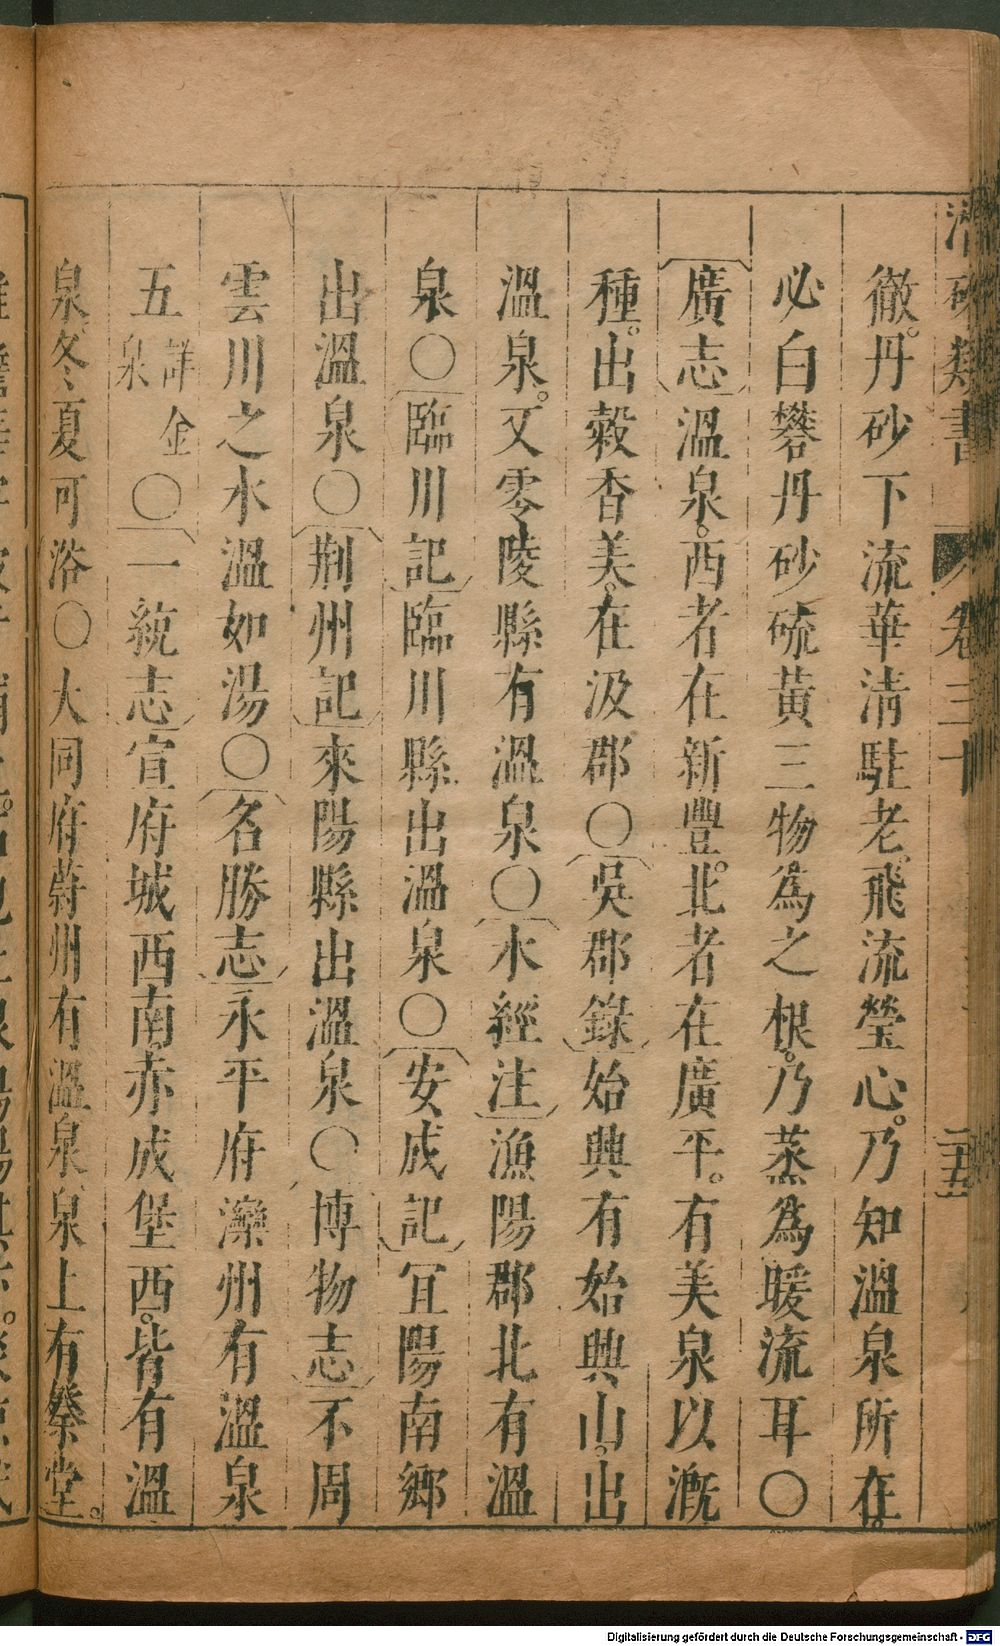 潛確類書 卷三十 二五
徹。丹砂下流華清駐老飛流瑩心。乃知溫泉所在。
必白礬丹砂硫黃三物爲之根。乃蒸爲暖流耳〇
廣志溫泉。西者在新豐。北者在廣平。有美泉以漑
種。出穀香美。在汲郡〇吳郡錄始興有始興山。出
溫泉。又零陵縣有溫泉〇水經注漁陽郡北有溫
泉〇臨川記臨川縣出溫泉〇安成記冝陽南鄉
出溫泉〇荆州記來陽縣出溫泉〇博物志不周
雲川之水溫如湯〇名勝志永平府灤州有溫泉
五詳金泉〇一統志宣府城西南赤成堡西。皆有溫
泉冬夏可浴〇大同府蔚州有溫泉泉上有祭堂。
Digitalisierung gefördert durch die Deutsche Forschungsgemeinschaft - DFG